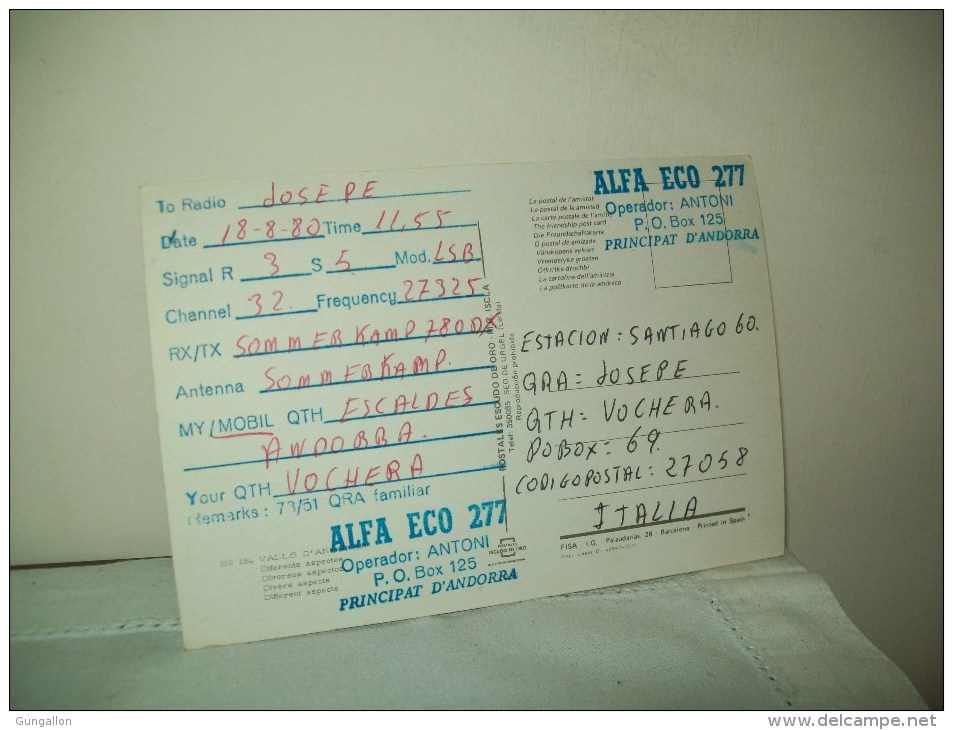 To Radio JOSEPE
Date 18-8-80 Time 11,55
Signal R 3 S 5. Mod. LSB
Channel 32. Frequency 27325
RX/TX SOMMERKAMP 780DX
Antenna SOMMERKAMP.
MY/MOBIL QTH ESCALDES
ANDORRA.
Your QTH VOCHERA
Remarks: 73/51 QRA familiar
ALFA ECO 277
Operador: ANTONI
P.O. Box 125
PRINCIPAT D'ANDORRA
VALLS D'AN
Diferents aspectes
Diversos aspectos
Divers aspects
Different aspects
POSTALES ESCUDO DE ORO
Telef. 350085 - SEO DE URGEL (Lérida)
Reproducción prohibida
ALFA ECO 277
Operador: ANTONI
P.O. Box 125
PRINCIPAT D'ANDORRA
La postal de l'amistat
La postal de la amistad
La carte postale de l'amitié
The friendship post card
Die Freundschaftskarte
O postal de amizade
Vänskapens vykort
Vriendelyke groeten
La cartolina dell'amicizia
ESTACION: SANTIAGO 60.
QRA = JOSEPE
QTH = VOCHERA.
POBOX = 69.
CODIGO POSTAL: 27058
ITALIA
FISA - I.G. Palaudarias, 26 - Barcelona - Printed in Spain
Gungallon
delcampe.net